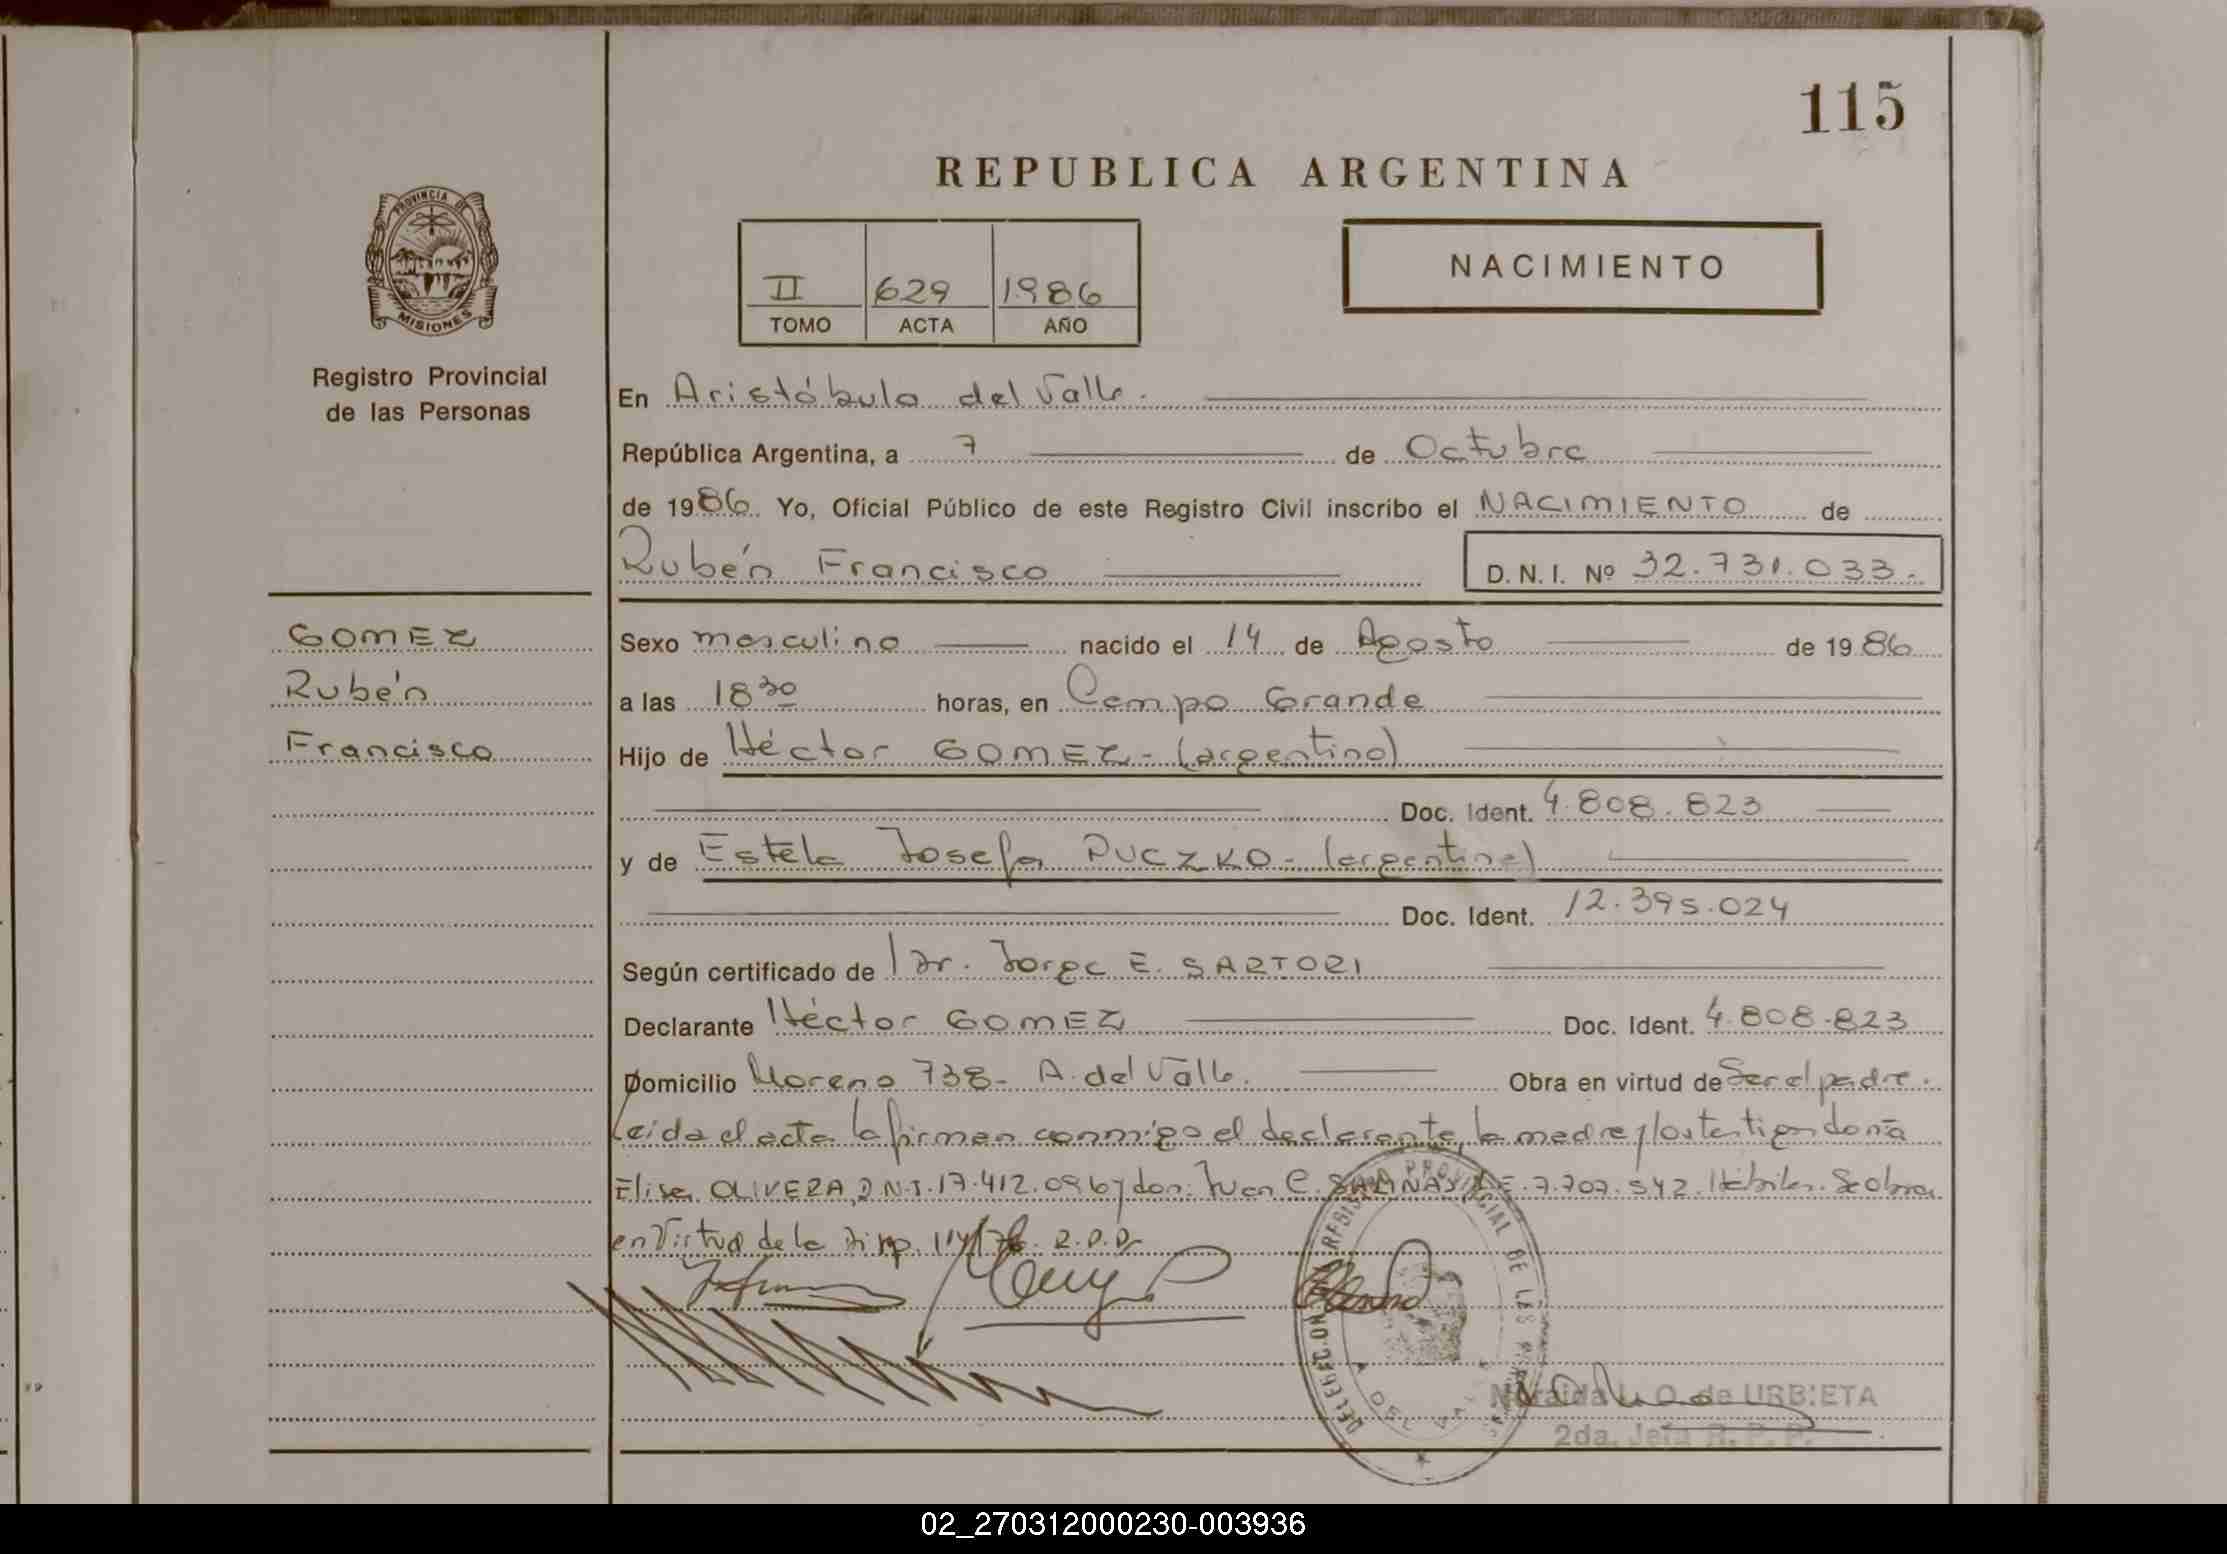 115
REPUBLICA ARGENTINA
PROVINCIA DE
MISIONES
II 629 1986
TOMO ACTA AÑO
NACIMIENTO
Registro Provincial
de las Personas
En Aristóbulo del Valle.
República Argentina, a 7 de Octubre
de 1986. Yo, Oficial Público de este Registro Civil inscribo el NACIMIENTO de
Rubén Francisco D. N. I. Nº 32.731.033.-
GOMEZ
Rubén
Francisco
Sexo masculino nacido el 14 de Agosto de 1986
a las 18 30 horas, en Campo Grande
Hijo de Héctor GOMEZ - (argentino)
Doc. Ident. 4.808.823
y de Estela Josefa PUCZKO - (argentina)
Doc. Ident. 12.395.024
Según certificado de Dr. Jorge E. SARTORI
Declarante Héctor GOMEZ Doc. Ident. 4.808.823
Domicilio Moreno 738- A. del Valle. Obra en virtud de Ser el padre.
Leida el acta la firman conmigo el declarante, la madre y los testigos doña
Elisa OLIVERA, D.N.I. 17.412.096 y don: Juan C. SALINAS, L.E. 7.707.542. Hábiles. Se obra
en Virtud de la Disp. R.P.P.
DELEGACION REGISTRO PROVINCIAL DE LAS
A. DEL VALLE
L. O. de URBIETA
2da. Jefa R. P. P.
02_270312000230-003936